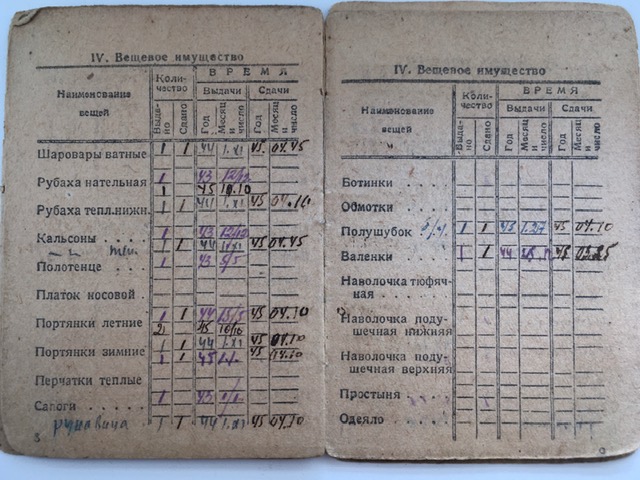 IV. Вещевое имущество
Наименование вещей
Количество
ВРЕМЯ
Выдачи
Сдачи
Выдано
Сдано
Год
Месяц и число
Год
Месяц и число
Шаровары ватные 1 1 44 1.XI 45 04.45
Рубаха нательная 1 43
1 45 10.10
Рубаха тепл.нижн. 1 1 44 1.XI 45 04.10
Кальсоны . . . . 1 43
1 1 44 1.XI 45 04.45
Полотенце . . . 1 43 5/5
Платок носовой .
Портянки летние 1 1 44 15/5 45 04.10
2 45
Портянки зимние 1 1 44 1.XI 45 04.10
1 1 45 45 04.10
Перчатки теплые
Сапоги . . . . . 1 45
рукавица 1 1 44 1.XI 45 04.10
IV. Вещевое имущество
Наименование вещей
Количество
ВРЕМЯ
Выдачи
Сдачи
Выдано
Сдано
Год
Месяц и число
Год
Месяц и число
Ботинки . . . .
Обмотки . . . .
Полушубок 1 1 43 45 04.10
Валенки . . . . 1 1 44 45
Наволочка тюфяч-
ная . . . . .
Наволочка поду-
шечная нижняя
Наволочка поду-
шечная верхняя
Простыня . . .
Одеяло . . . .